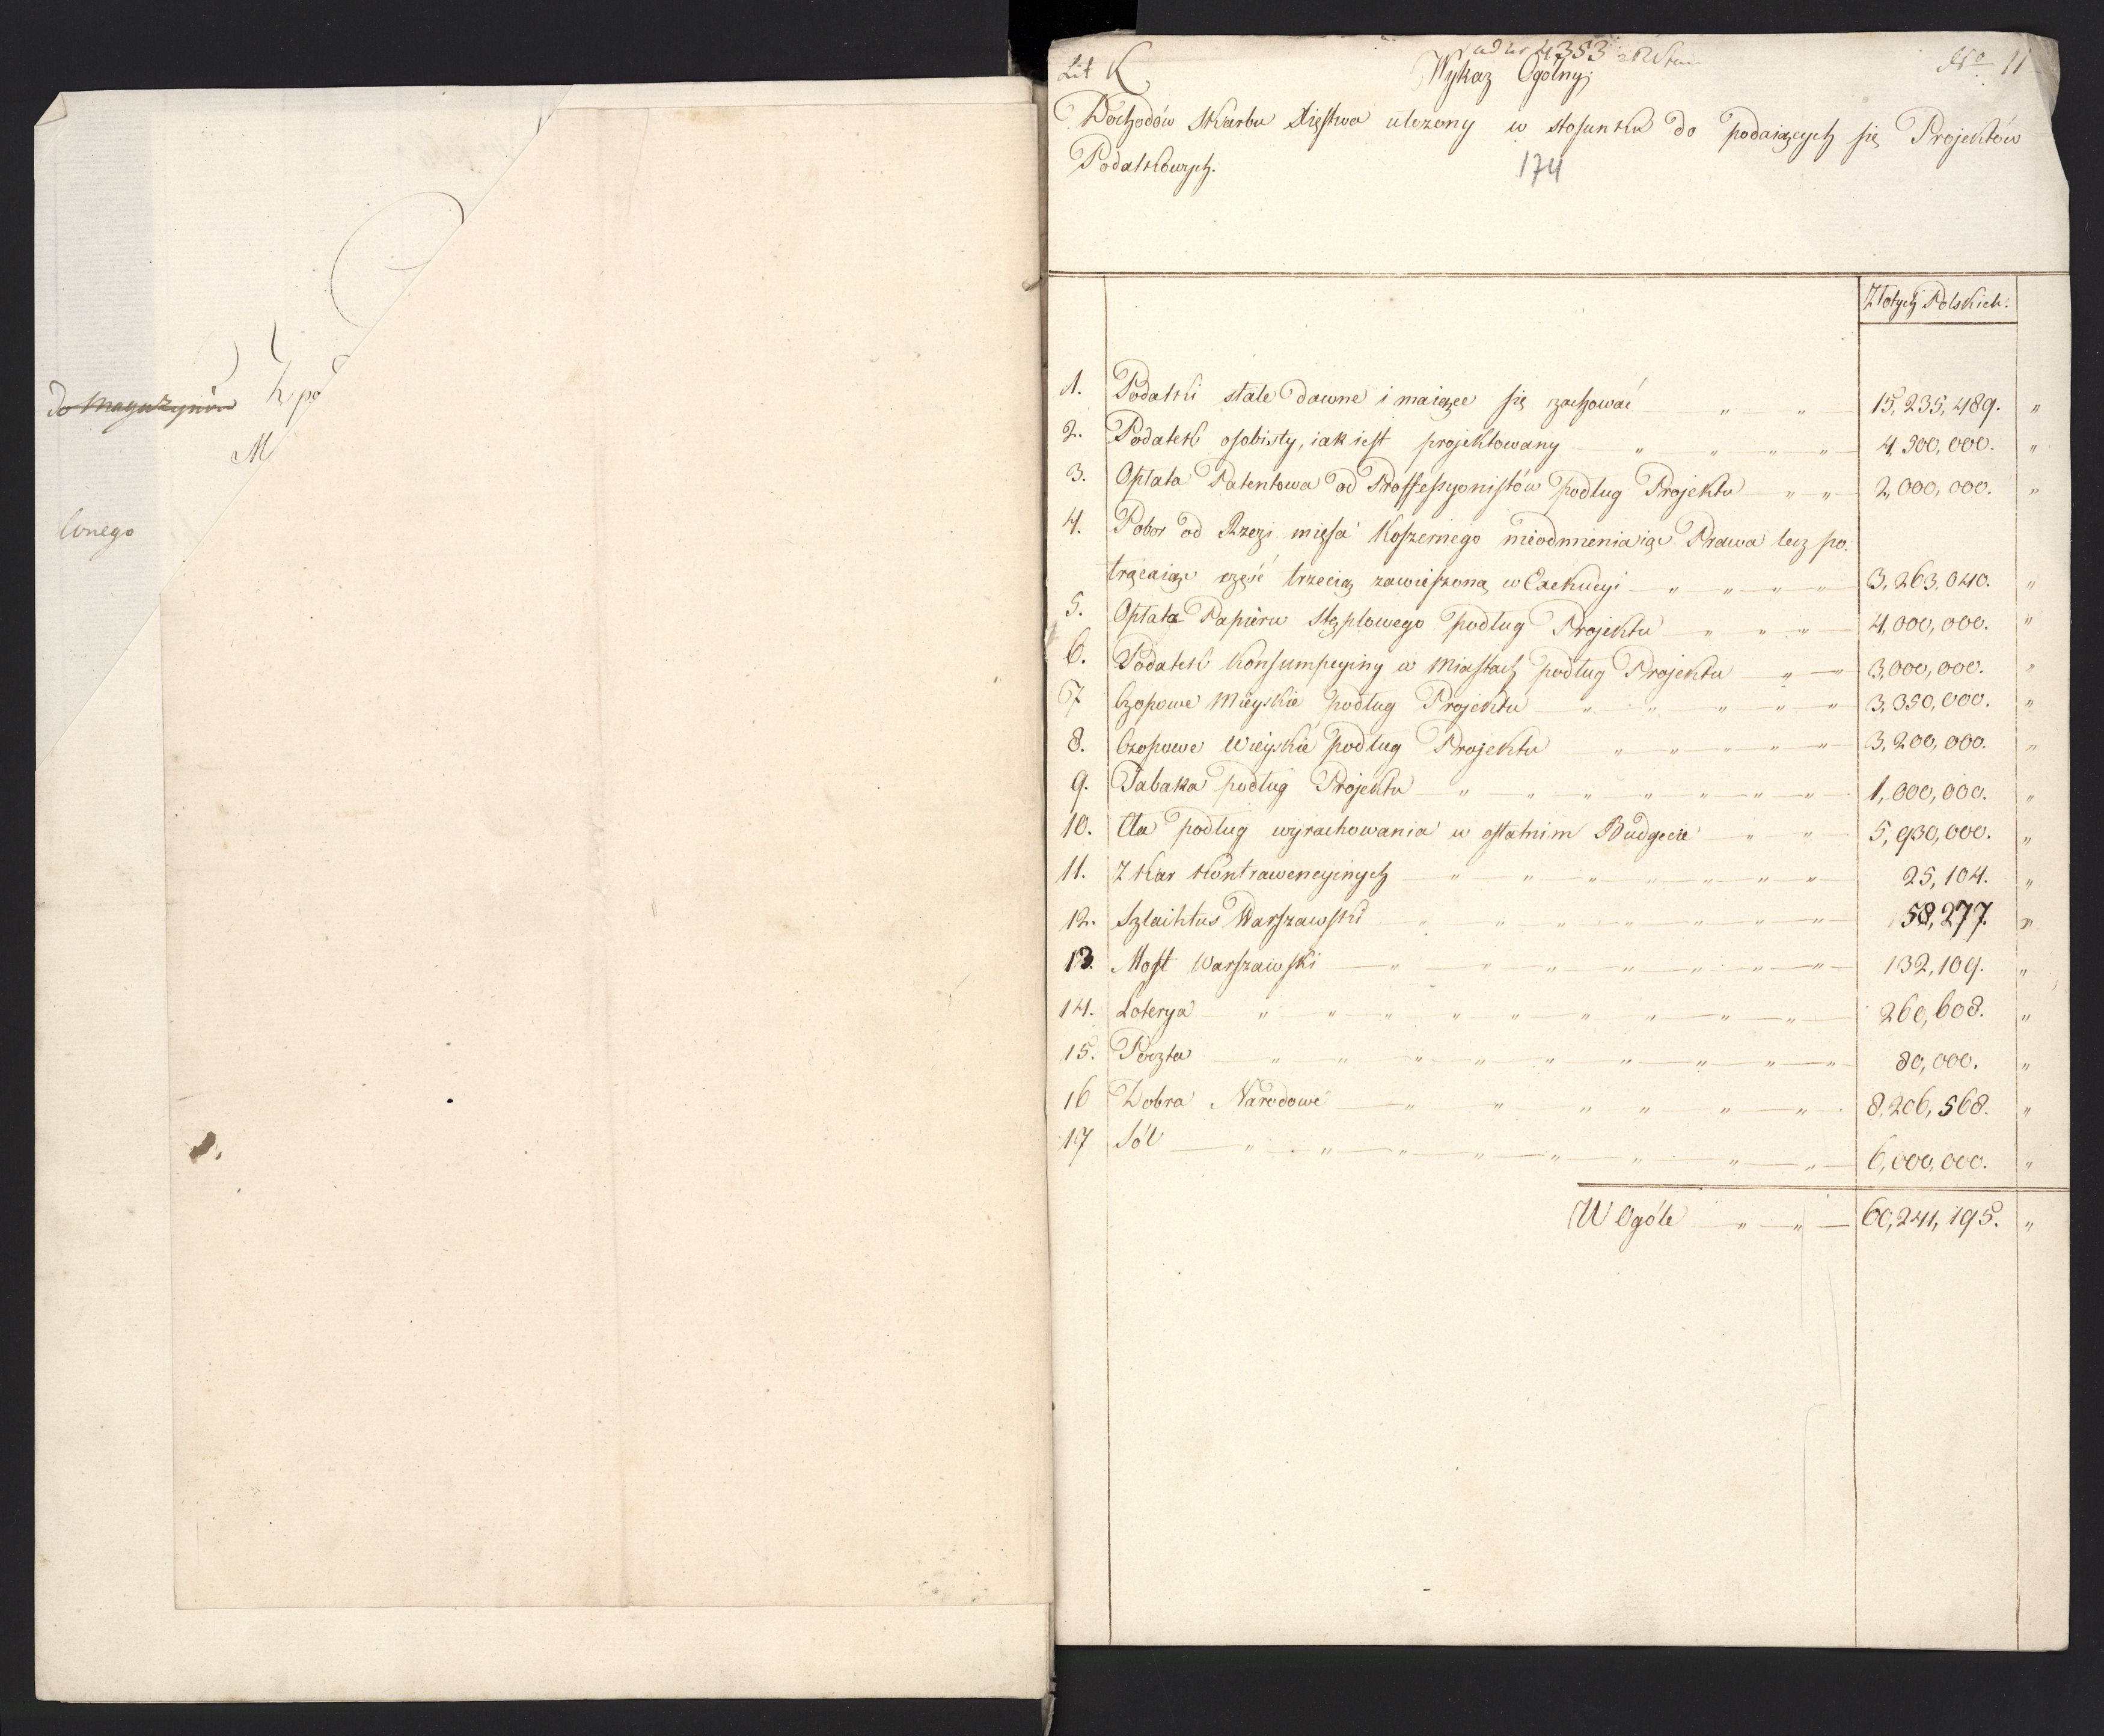 do Magazynów
M
lonego
ad nr 4353
Lit K
Wykaz Ogólny
No 11
Dochodów Skarbu Xięstwa ułożony w stosunku do podaiących się Projektów
Podatkowych.
174
Złotych Polskich.
1. Podatki stałe dawne i maiące się zachować " " 15,235,489. "
2. Podatek osobisty, iak iest projektowany " " " " 4,500,000. "
3. Opłata Patentowa od Proffessyonistów podług Projektu " " 2,000,000. "
4. Pobor od Rzezi mięsa Koszernego nieodmieniaiąc Prawa lecz po-
trącaiąc część trzecią zawieszoną w Exekucyi " " " " 3,263,040. "
5. Opłata Papieru Stęplowego podług Projektu " " " 4,000,000. "
6. Podatek Konsumpcyiny w Miastach podług Projektu " " 3,000,000. "
7 Czopowe Mieyskie podług Projektu " " " " " 3,350,000. "
8. Czopowe Wieyskie podług Projektu " " " " " 3,200,000. "
9. Tabaka podług Projektu " " " " " " " 1,000,000. "
10. Cła podług wyrachowania w ostatnim Budgecie " " 5,930,000. "
11. Z Kar Kontrawencyinych " " " " " " " 25,104. "
12. Szlachtus Warszawski " " " " " " " 58,277. "
13. Most Warszawski " " " " " " " 132,109. "
14. Loterya " " " " " " " " " " 260,608. "
15. Poczta " " " " " " " " " 80,000. "
16 Dobra Narodowe " " " " " " 8,206,568. "
17 Sól " " " " " " " " 6,000,000. "
W Ogóle " " 60,241,195. "